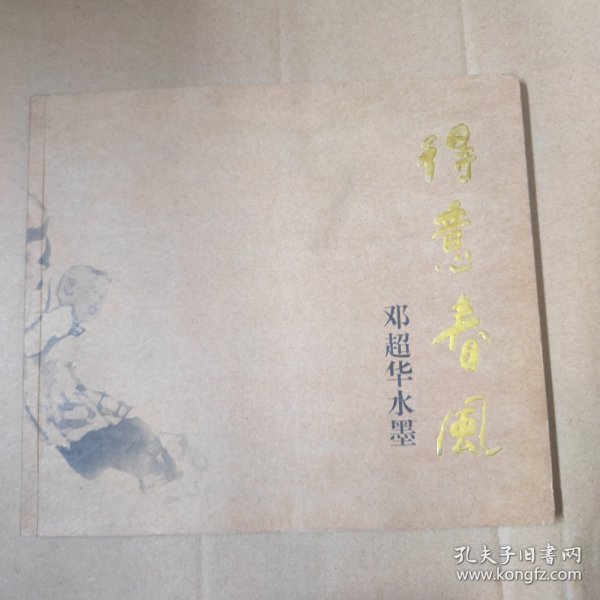 得意春风
邓超华水墨
孔夫子旧書网
www.kongfz.com